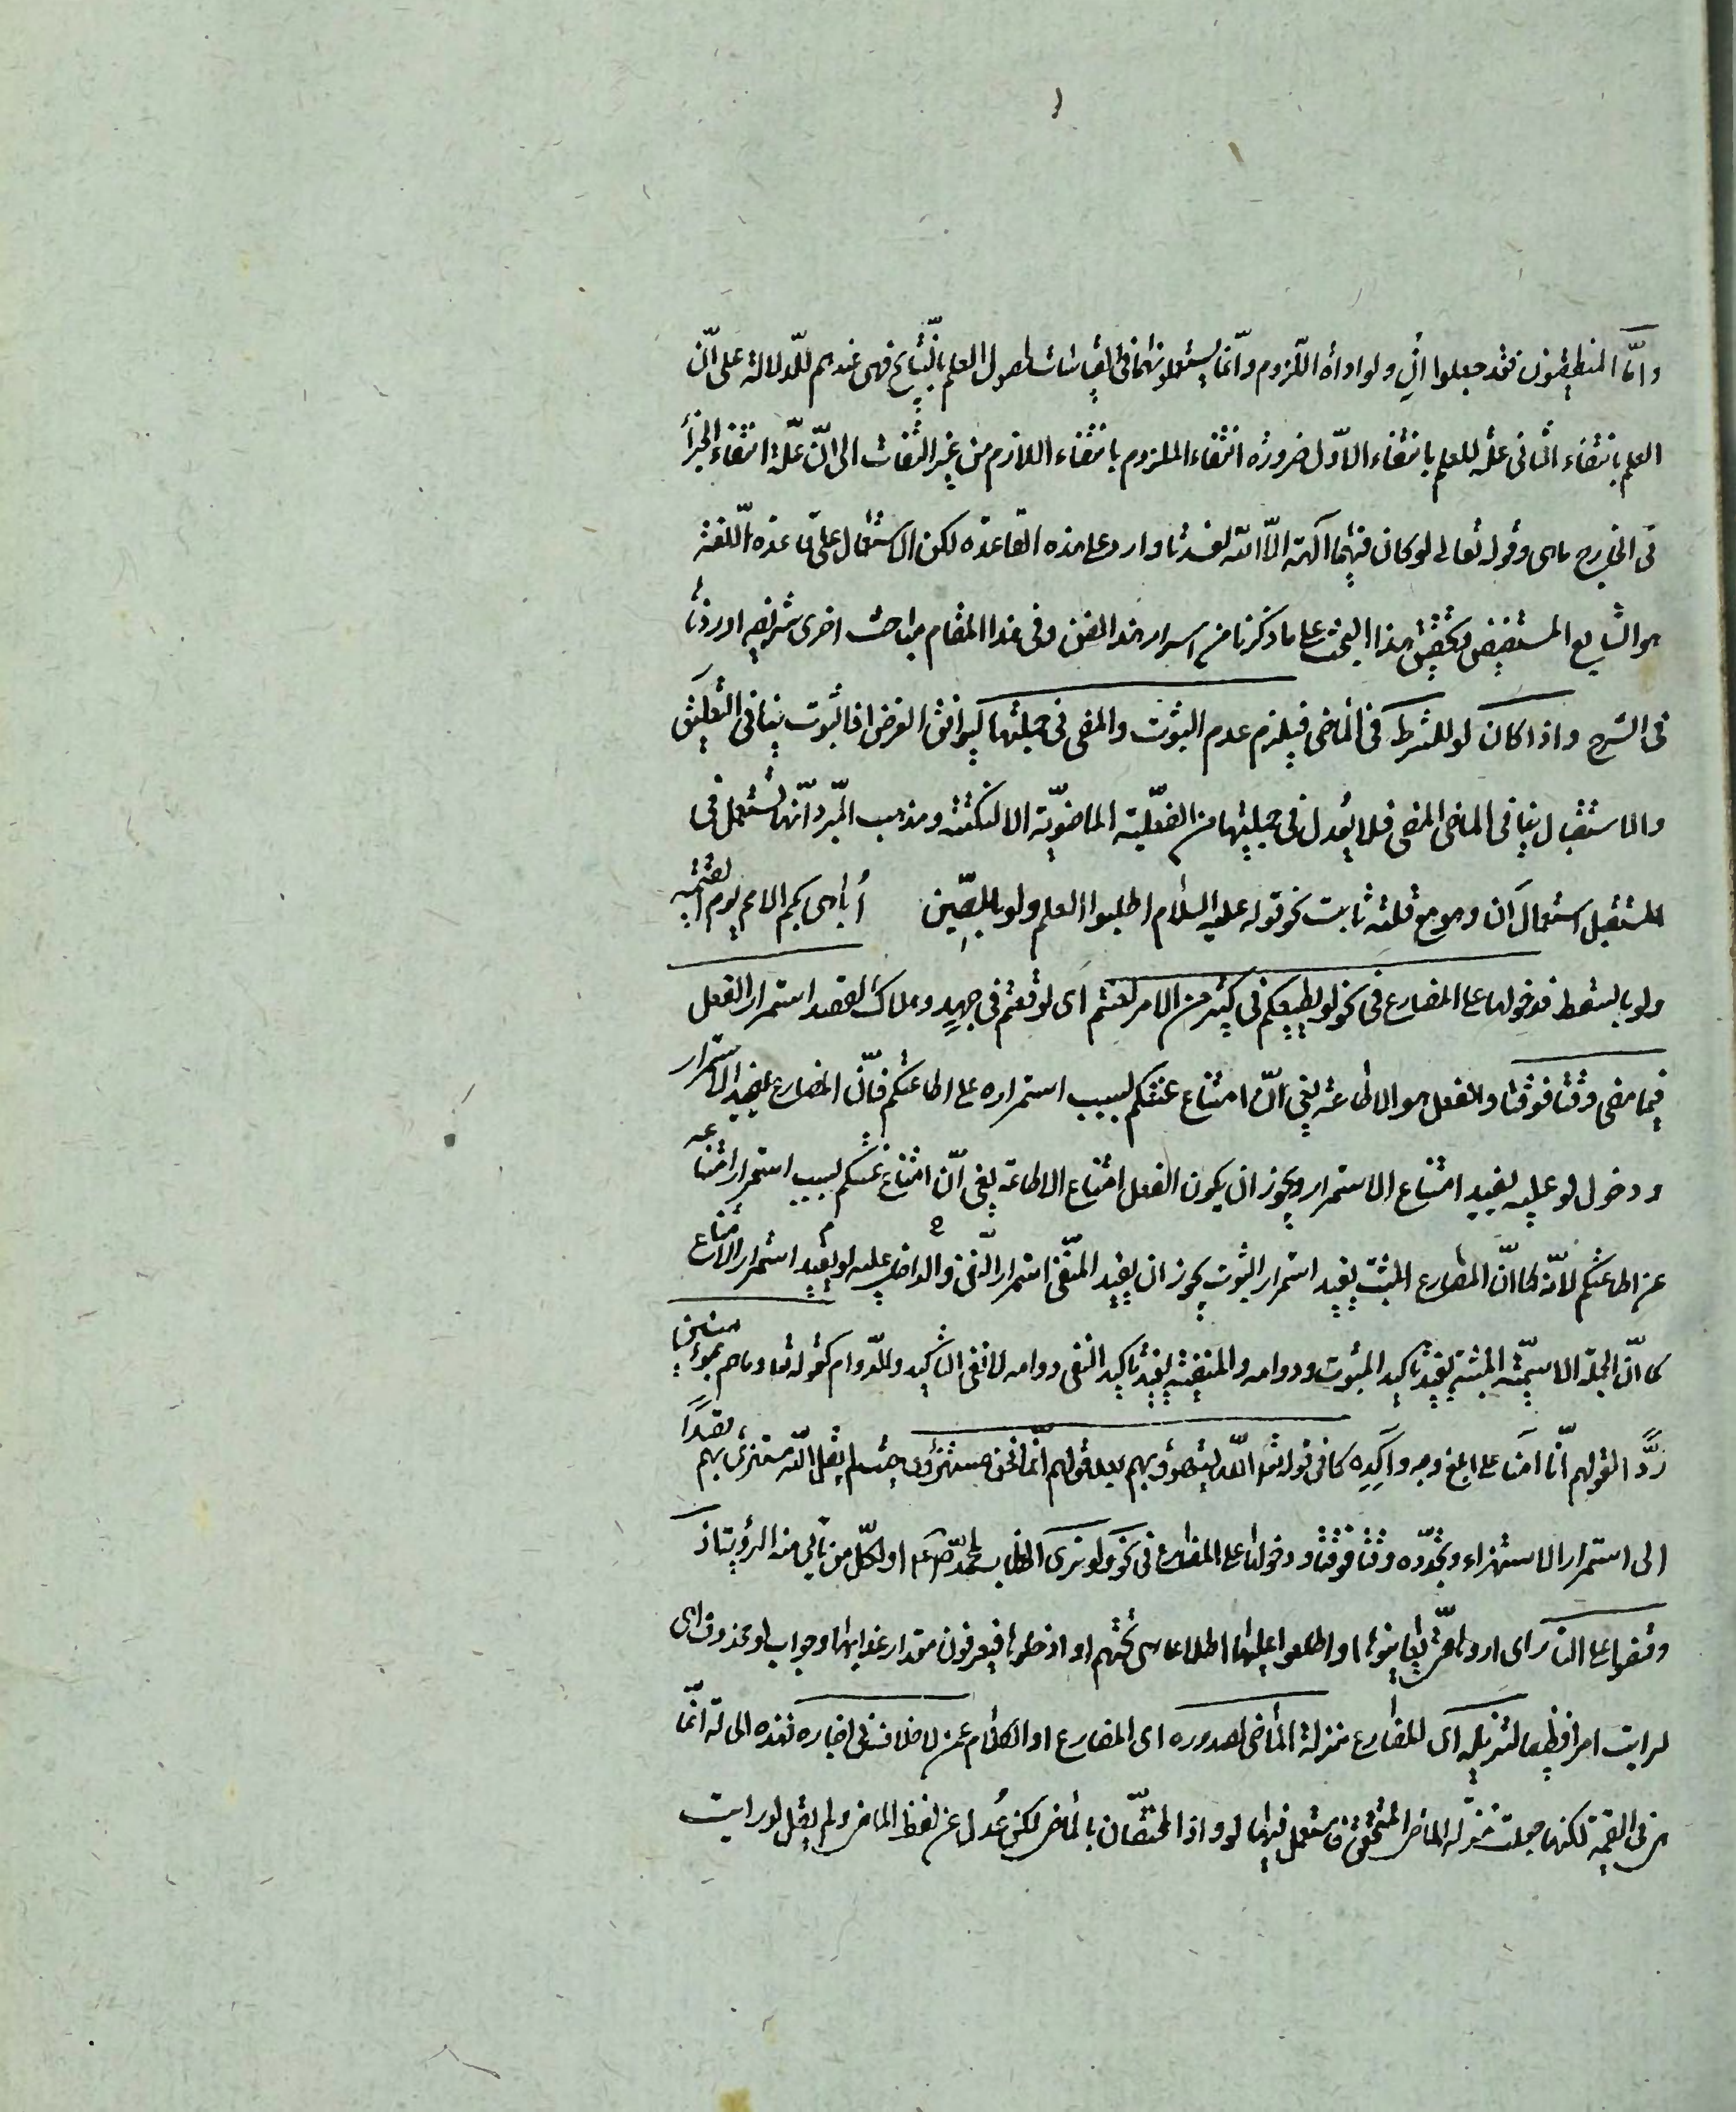 وامّا المنطقيون فقد جعلوا ان ولو اداة اللزوم وانّما يستعملونهما فى القياسات لحصول العلم بالنّتايج فهى عندهم للدّلالة على انّ
العلم بانتفاء الثانى علّة للعلم بانتفاء الاوّل ضرورة انتفاء الملزوم بانتفاء اللازم من غير التفات الى انّ علّة انتفاء الجزأ
فى الخارج ماهى وقوله تعالى لو كان فيهما آلهة الّا الله لفسدتا وارد على هذه القاعدة لكن الاستعمال على قاعدة اللغة
هو الشايع المستفيض وتحقيق هذا البحث على ما ذكرنا من اسرار هذا الفن وفى هذا المقام مباحث اخرى شريفة اوردناها
فى الشرح واذا كان لو للشرط فى الماضى فيلزم عدم الثبوت والمضى فى جملتيها ليوافق الغرض اذ الثبوت ينافى التعليق
والاستقبال ينافى الماضى المضى فلا يعدل فى جملتيها عن الفعليّة الماضويّة الا لنكتة ومذهب المبرّد انّها تستعمل فى
المستقبل استعمال ان وهو مع قلته ثابت نحو قوله عليه السلام اطلبوا العلم ولو بالصّين اُباهى بكم الامم يوم القيمة
ولو بالسقط فدخولها على المضارع فى نحو لو يطيعكم فى كثير من الامر لعنتم اى لوقعتم فى جهد وهلاك لقصد استمرار الفعل
فيما مضى وقتا فوقتا والفعل هو الاطاعة يعنى انّ امتناع عنتكم بسبب استمراره على اطاعتكم فانّ المضارع يفيد الاستمرار
ودخول لو عليه يفيد امتناع الاستمرار ويجوز ان يكون الفعل امتناع الاطاعة يعنى انّ امتناع عنتكم بسبب استمرار امتناعه
عن اطاعتكم لانّه كما انّ المضارع المثبت يفيد استمرار الثبوت يجوز ان يفيد المنفى استمرار النّفى والداخل عليه لو يفيد استمرار الامتناع
كما انّ الجملة الاسميّة المثبتة يفيد تاكيد الثبوت ودوامه والمنفيّة يفيد تاكيد النفى ودوامه لا نفى التاكيد والدّوام كقوله تعا وماهم بمؤمنين
ردًّا لقولهم انّا آمنا على ابلغ وجه وآكده كما فى قوله تعا الله يستهزئ بهم بعد قولهم انّما نحن مستهزؤن حيث لم يقل الله مستهزئ بهم قصدًا
الى استمرار الاستهزاء وتجدّده وقتا فوقتا ودخولها على المضارع فى نحو ولو ترى الخطاب لمحمّد صعم او لكلّ من تأتى منه الرؤية اذ
وقفوا على النار اى اروها حتى يعاينوها او اطلعوا عليها اطلاعا هى تحتهم او ادخلوها فيعرفون مقدار عذابها وجواب لو محذوف اى
لرايت امرا فظيعا لتنزيله اى المضارع منزلة الماضى لصدوره اى المضارع او الكلام عمن لا خلاف فى اخباره فهذه الحالة انّما
هى فى القيمة لكنها جعلت بمنزلة الماضى المتحقق فاستعمل فيها لو واذ المختصّان بالماضى لكن عُدل عن لفظ الماضى ولم يقل لو رايت